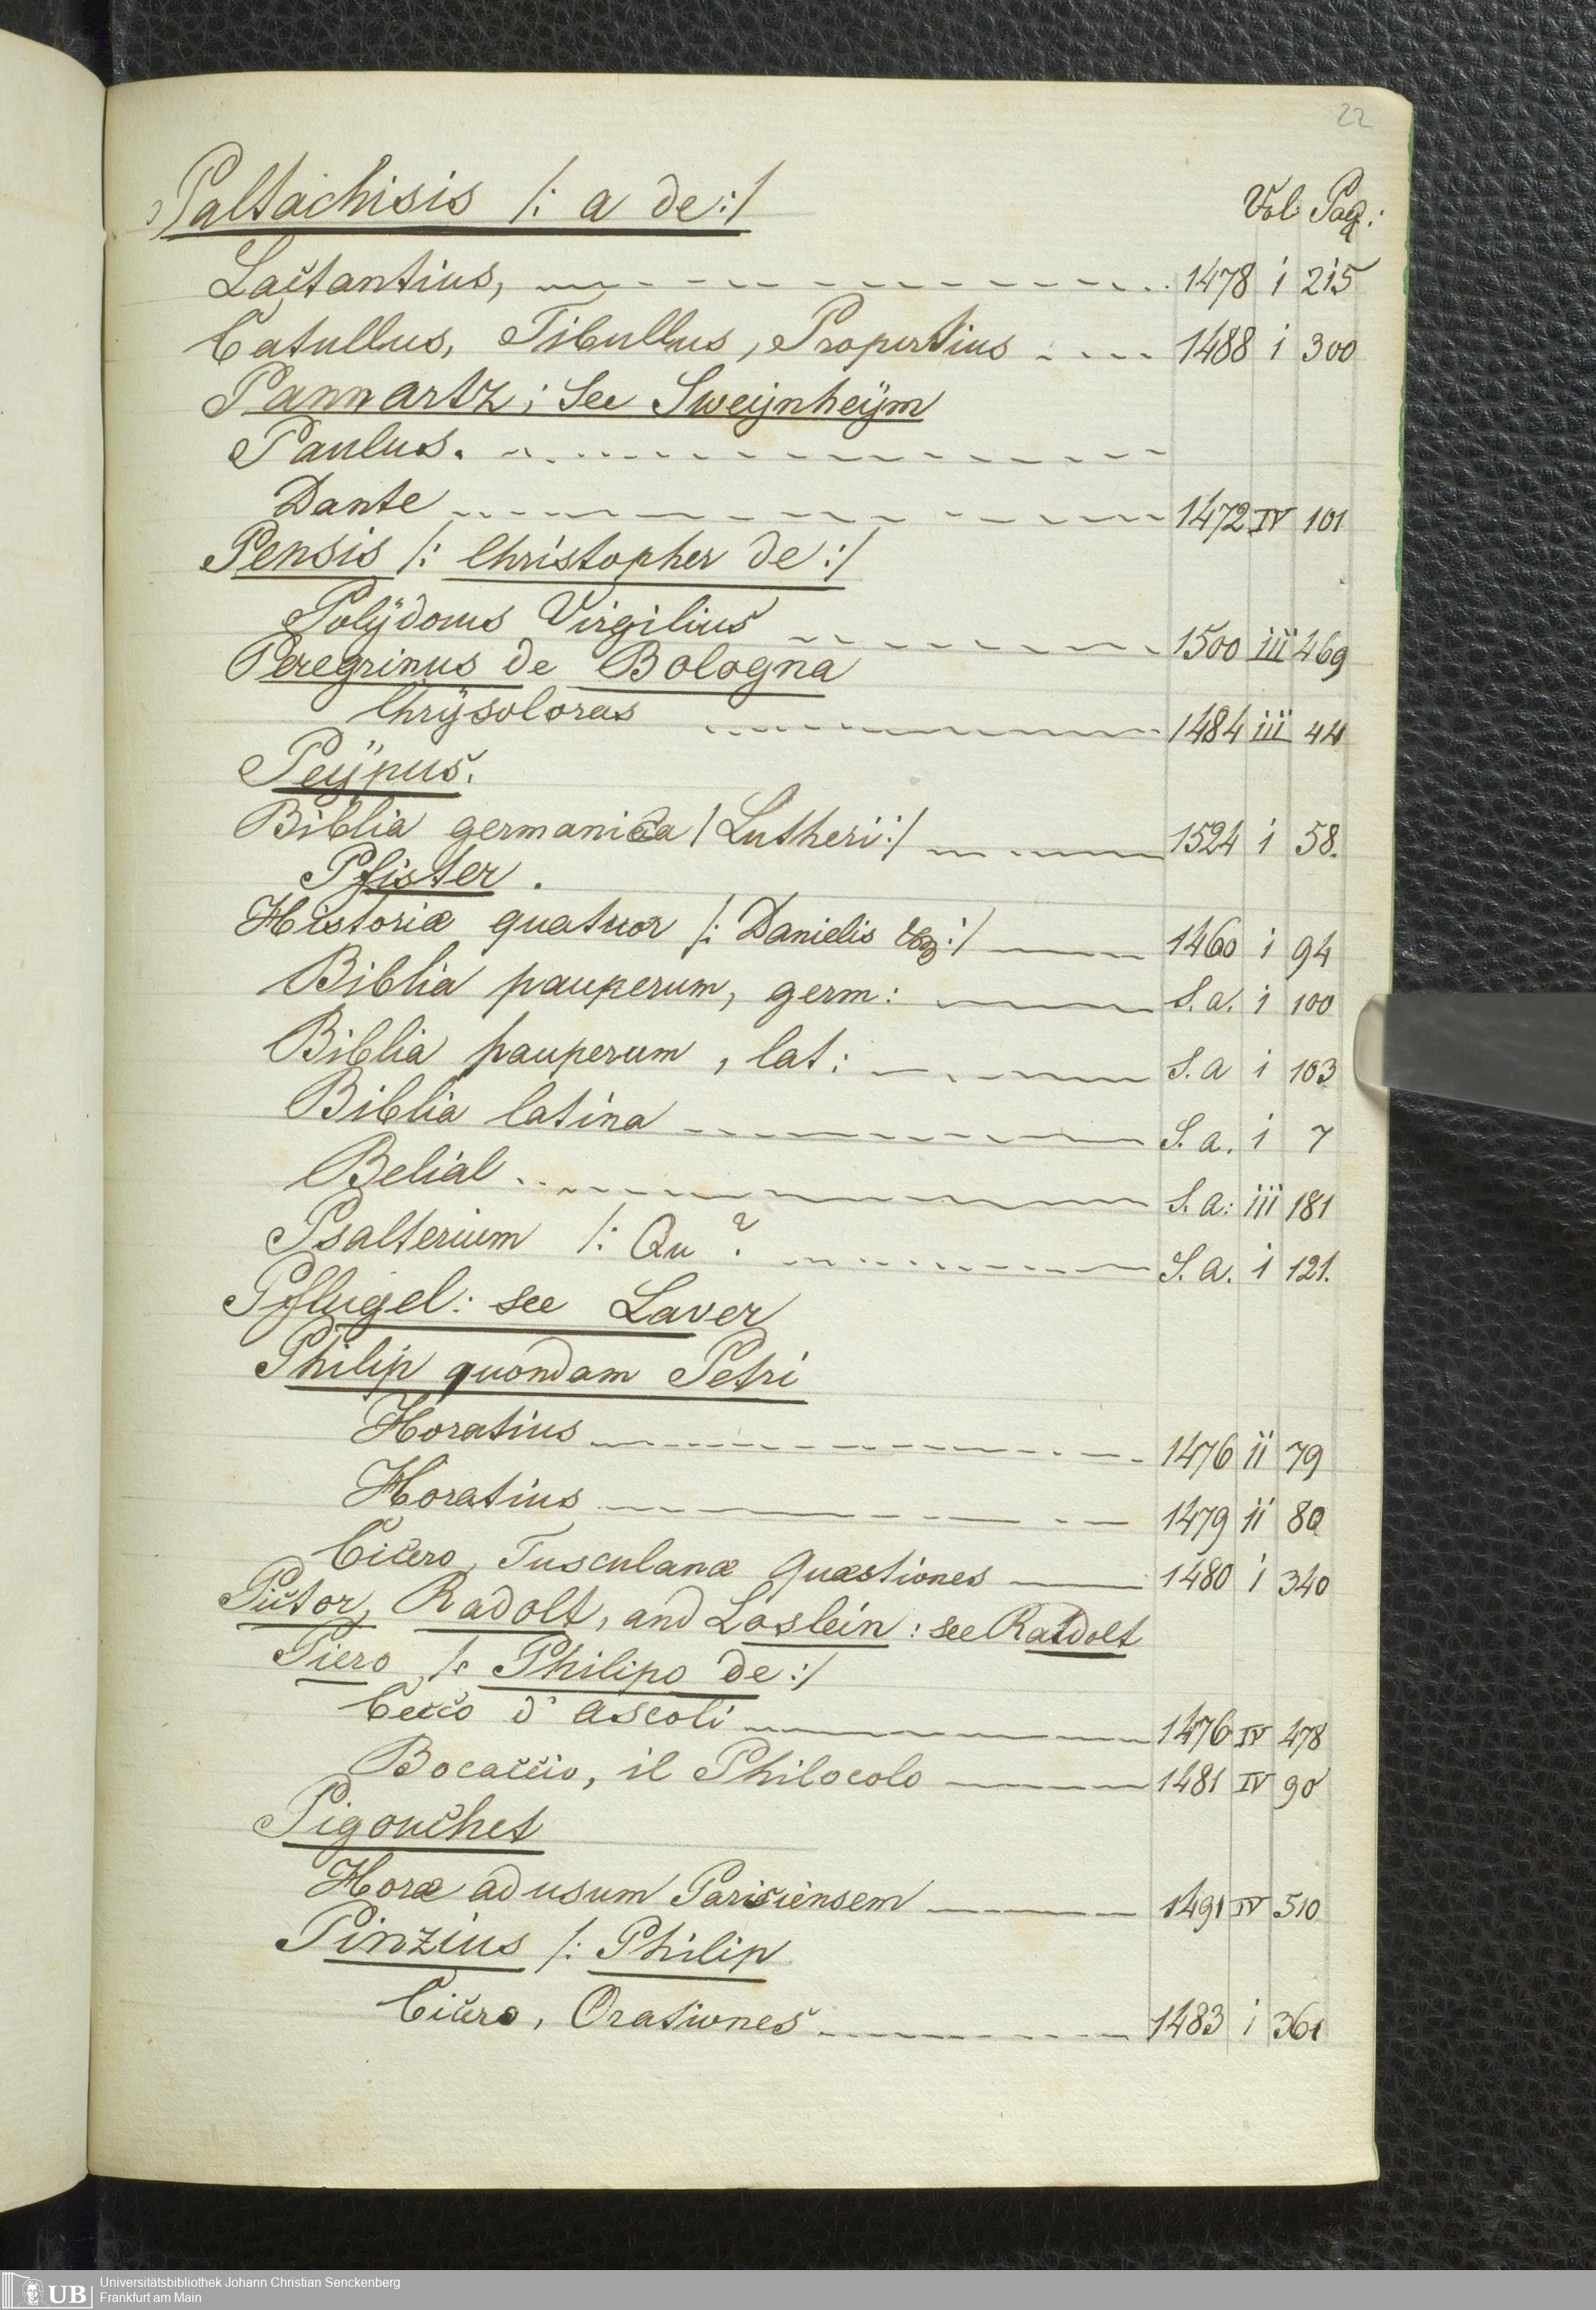 22
Paltachisis /: a de:/ Vol: Pag:
Lactantius, 1478 i 215
Catullus, Tibullus, Propertius 1488 i 300
Pannartz; See Sweijnheÿm
Paulus.
Dante 1472 IV 101
Pensis /: Christopher de:/
Polÿdorus Virgilius 1500 iii 469
Peregrinus de Bologna
Chrÿsoloras 1484 iii 44
Peÿpus.
Biblia germanica / Lutheri:/ 1524 i 58.
Pfister.
Historiæ quatuor /: Danielis &c:/ 1460 i 94
Biblia pauperum, germ: S. a. i 100
Biblia pauperum, lat: S. a i 103
Biblia latina S. a. i 7
Belial S. a: iii 181
Psalterium /: Qu? S. a. i 121.
Pflugel: see Laver
Philip quondam Petri
Horatius 1476 ii 79
Horatius 1479 ii 80
Cicero, Tusculanæ Quæstiones 1480 i 340
Pictor, Radolt, and Loslein: see Ratdolt
Piero /: Philipo de:/
Cecco d' ascoli 1476 IV 478
Bocaccio, il Philocolo 1481 IV 90
Pigouchet
Horæ ad usum Parisiensem 1491 IV 510
Pinzius /: Philip
Cicero, Orationes 1483 i 361
UB Universitätsbibliothek Johann Christian Senckenberg
Frankfurt am Main